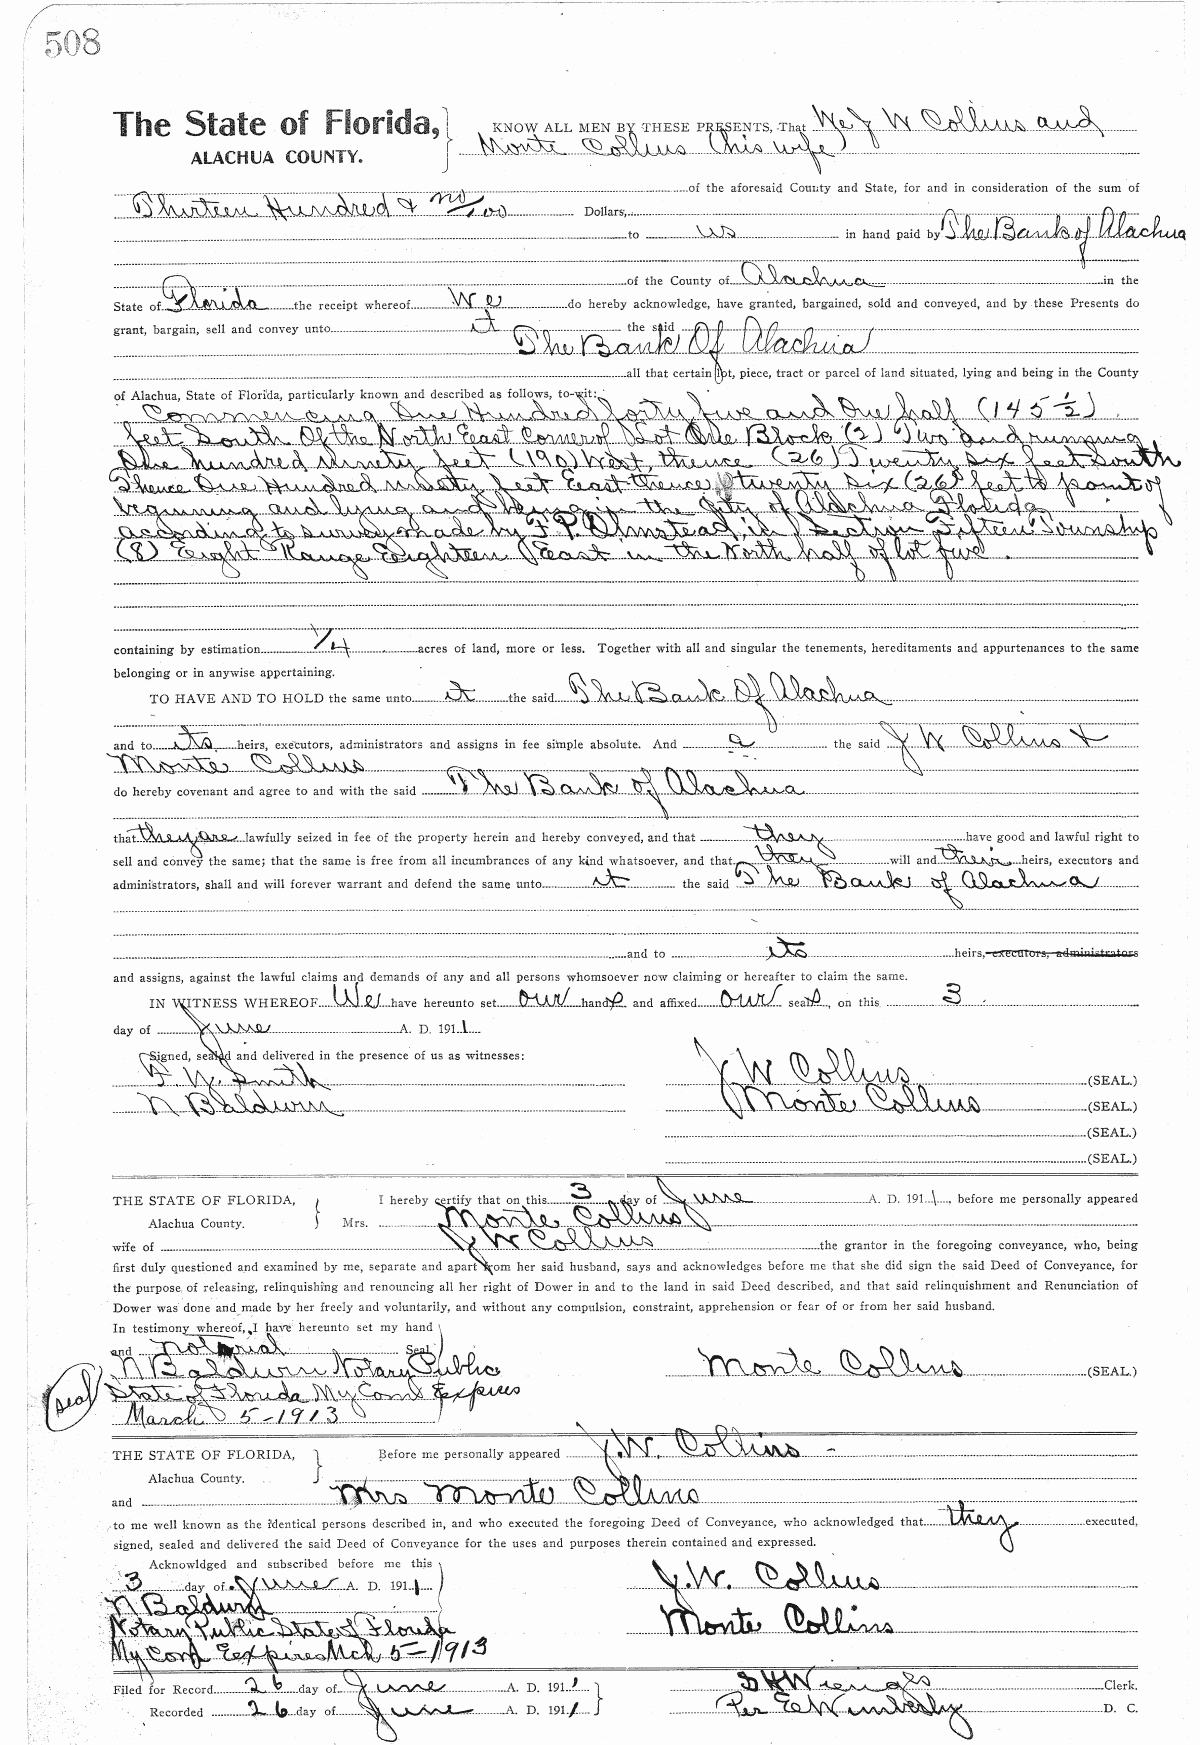 508
The State of Florida,
ALACHUA COUNTY.
KNOW ALL MEN BY THESE PRESENTS, That We J W Collins and
Monte Collins (his wife)
of the aforesaid County and State, for and in consideration of the sum of
Thirteen Hundred & no/100 Dollars,
to us in hand paid by The Bank of Alachua
of the County of Alachua in the
State of Florida the receipt whereof We do hereby acknowledge, have granted, bargained, sold and conveyed, and by these Presents do
grant, bargain, sell and convey unto it the said
The Bank Of Alachua
all that certain lot, piece, tract or parcel of land situated, lying and being in the County
of Alachua, State of Florida, particularly known and described as follows, to-wit:
Commencing One Hundred forty five and One half (145 ½)
feet South Of the North East Corner of Lot One Block (2) Two and running
One hundred ninety feet (190) West, thence (26) Twenty six feet South
Thence One Hundred ninety feet East thence twenty six (26) feet to point of
beginning and lying and being in the City of Alachua Florida
according to survey made by F. P. Olmstead, in Section Fifteen Township
(8) Eight Range Eighteen East in the North half of lot five.
containing by estimation 1/4 acres of land, more or less. Together with all and singular the tenements, hereditaments and appurtenances to the same
belonging or in anywise appertaining.
TO HAVE AND TO HOLD the same unto it the said The Bank Of Alachua
and to its heirs, executors, administrators and assigns in fee simple absolute. And a the said J W Collins &
Monte Collins
do hereby covenant and agree to and with the said The Bank of Alachua
that they are lawfully seized in fee of the property herein and hereby conveyed, and that they have good and lawful right to
sell and convey the same; that the same is free from all incumbrances of any kind whatsoever, and that they will and their heirs, executors and
administrators, shall and will forever warrant and defend the same unto it the said The Bank of Alachua
and to its heirs, executors, administrators
and assigns, against the lawful claims and demands of any and all persons whomsoever now claiming or hereafter to claim the same.
IN WITNESS WHEREOF We have hereunto set our hands and affixed our seals, on this 3
day of June A. D. 1911
Signed, sealed and delivered in the presence of us as witnesses:
F. W. Smith
N Baldwin
J W Collins (SEAL.)
Monte Collins (SEAL.)
(SEAL.)
(SEAL.)
THE STATE OF FLORIDA,
Alachua County.
I hereby certify that on this 3 day of June A. D. 1911, before me personally appeared
Mrs. Monte Collins
wife of J W Collins the grantor in the foregoing conveyance, who, being
first duly questioned and examined by me, separate and apart from her said husband, says and acknowledges before me that she did sign the said Deed of Conveyance, for
the purpose of releasing, relinquishing and renouncing all her right of Dower in and to the land in said Deed described, and that said relinquishment and Renunciation of
Dower was done and made by her freely and voluntarily, and without any compulsion, constraint, apprehension or fear of or from her said husband.
In testimony whereof, I have hereunto set my hand
and notarial Seal
N Baldwin Notary Public
Monte Collins (SEAL)
seal
State of Florida My Com Expires
March 5-1913
THE STATE OF FLORIDA,
Alachua County.
Before me personally appeared J. W. Collins -
and Mrs Monte Collins
to me well known as the identical persons described in, and who executed the foregoing Deed of Conveyance, who acknowledged that they executed,
signed, sealed and delivered the said Deed of Conveyance for the uses and purposes therein contained and expressed.
Acknowldged and subscribed before me this
3 day of June A. D. 1911
N Baldwin
Notary Public State of Florida
My Com Eexpires Mch 5-1913
J. W. Collins
Monte Collins
Filed for Record 26 day of June A. D. 1911
Recorded 26 day of June A. D. 1911
S H Wienges Clerk.
Per E Wimberly D. C.